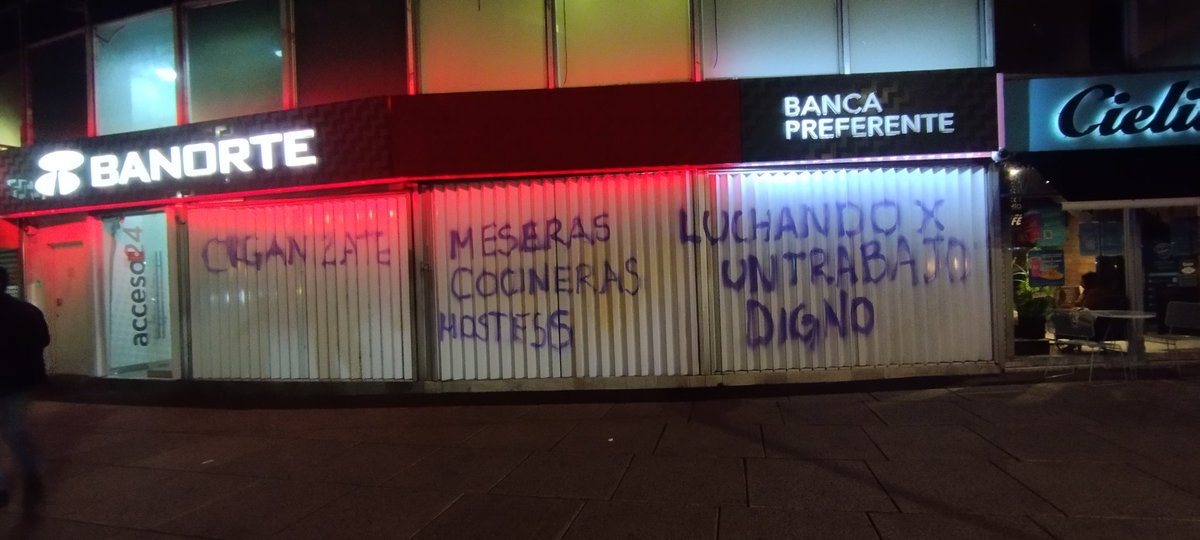 BANORTE
BANCA
PREFERENTE
acceso24
ORGANIZATE
MESERAS
COCINERAS
HOSTESS
LUCHANDO X
UN TRABAJO
DIGNO